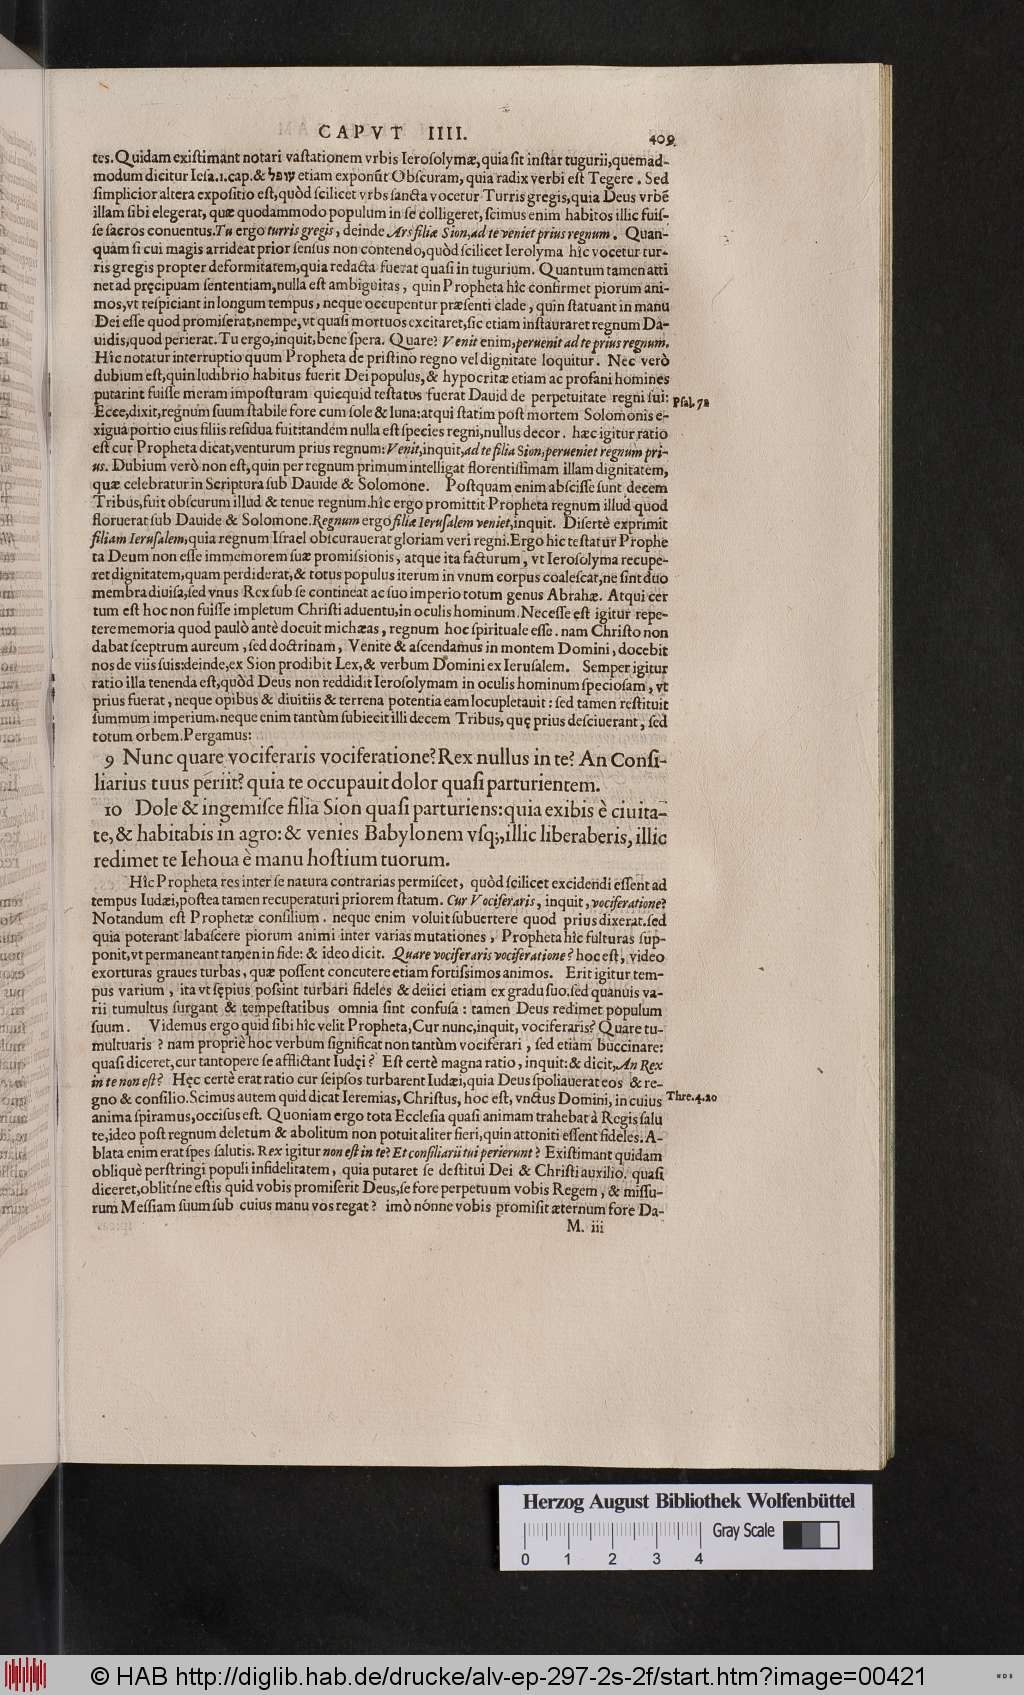 CAPVT IIII.
409
tes. Quidam existimant notari vastationem vrbis Ierosolymæ, quia sit instar tugurii, quemad-
modum dicitur Iesa.1.cap.& עופל etiam exponũt Obscuram, quia radix verbi est Tegere. Sed
simplicior altera expositio est, quòd scilicet vrbs sancta vocetur Turris gregis, quia Deus vrbẽ
illam sibi elegerat, quæ quodammodo populum in se colligeret, scimus enim habitos illic fuis-
se sacros conuentus. Tu ergo turris gregis, deinde Ars filiæ Sion, ad te veniet prius regnum. Quan-
quàm si cui magis arrideat prior sensus non contendo, quòd scilicet Ierolyma hîc vocetur tur-
ris gregis propter deformitatem, quia redacta fuerat quasi in tugurium. Quantum tamen atti
net ad pręcipuam sententiam, nulla est ambiguitas, quin Propheta hîc confirmet piorum ani-
mos, vt respiciant in longum tempus, neque occupentur præsenti clade, quin statuant in manu
Dei esse quod promiserat, nempe, vt quasi mortuos excitaret, sic etiam instauraret regnum Da-
uidis, quod perierat. Tu ergo, inquit, bene spera. Quare? Venit enim, peruenit ad te prius regnum.
Hîc notatur interruptio quum Propheta de pristino regno vel dignitate loquitur. Nec verò
dubium est, quin ludibrio habitus fuerit Dei populus, & hypocritæ etiam ac profani homines
putarint fuisse meram imposturam quicquid testatus fuerat Dauid de perpetuitate regni sui: Psal.72
Ecce, dixit, regnum suum stabile fore cum sole & luna: atqui statim post mortem Solomonis e-
xigua portio eius filiis residua fuit: tandem nulla est species regni, nullus decor. hæc igitur ratio
est cur Propheta dicat, venturum prius regnum: Venit, inquit, ad te filia Sion, perueniet regnum pri-
us. Dubium verò non est, quin per regnum primum intelligat florentissimam illam dignitatem,
quæ celebratur in Scriptura sub Dauide & Solomone. Postquam enim abscisse sunt decem
Tribus, fuit obscurum illud & tenue regnum. hîc ergo promittit Propheta regnum illud quod
floruerat sub Dauide & Solomone. Regnum ergo filiæ Ierusalem veniet, inquit. Disertè exprimit
filiam Ierusalem, quia regnum Israel obscurauerat gloriam veri regni. Ergo hic testatur Prophe
ta Deum non esse immemorem suæ promissionis, atque ita facturum, vt Ierosolyma recupe-
ret dignitatem, quam perdiderat, & totus populus iterum in vnum corpus coalescat, ne sint duo
membra diuisa, sed vnus Rex sub se contineat ac suo imperio totum genus Abrahæ. Atqui cer
tum est hoc non fuisse impletum Christi aduentu, in oculis hominum. Necesse est igitur repe-
tere memoria quod paulò antè docuit michæas, regnum hoc spirituale esse. nam Christo non
dabat sceptrum aureum, sed doctrinam, Venite & ascendamus in montem Domini, docebit
nos de viis suis: deinde, ex Sion prodibit Lex, & verbum Domini ex Ierusalem. Semper igitur
ratio illa tenenda est, quòd Deus non reddidit Ierosolymam in oculis hominum speciosam, vt
prius fuerat, neque opibus & diuitiis & terrena potentia eam locupletauit: sed tamen restituit
summum imperium. neque enim tantùm subiecit illi decem Tribus, quę prius desciuerant, sed
totum orbem. Pergamus:
9 Nunc quare vociferaris vociferatione? Rex nullus in te? An Consi-
liarius tuus periit? quia te occupauit dolor quasi parturientem.
10 Dole & ingemisce filia Sion quasi parturiens: quia exibis è ciuita-
te, & habitabis in agro: & venies Babylonem vsq;, illic liberaberis, illic
redimet te Iehoua è manu hostium tuorum.
Hîc Propheta res inter se natura contrarias permiscet, quòd scilicet excidendi essent ad
tempus Iudæi, postea tamen recuperaturi priorem statum. Cur Vociferaris, inquit, vociferatione?
Notandum est Prophetæ consilium. neque enim voluit subuertere quod prius dixerat. sed
quia poterant labascere piorum animi inter varias mutationes, Propheta hîc fulturas sup-
ponit, vt permaneant tamen in fide: & ideo dicit. Quare vociferaris vociferatione? hoc est, video
exorturas graues turbas, quæ possent concutere etiam fortissimos animos. Erit igitur tem-
pus varium, ita vt sępius possint turbari fideles & deiici etiam ex gradu suo. sed quanuis va-
rii tumultus surgant & tempestatibus omnia sint confusa: tamen Deus redimet populum
suum. Videmus ergo quid sibi hîc velit Propheta, Cur nunc, inquit, vociferaris? Quare tu-
multuaris? nam propriè hoc verbum significat non tantùm vociferari, sed etiam buccinare:
quasi diceret, cur tantopere se afflictant Iudęi? Est certè magna ratio, inquit: & dicit, An Rex
in te non est? Hęc certè erat ratio cur seipsos turbarent Iudæi, quia Deus spoliauerat eos & re-
gno & consilio. Scimus autem quid dicat Ieremias, Christus, hoc est, vnctus Domini, in cuius Thre.4.20
anima spiramus, occisus est. Quoniam ergo tota Ecclesia quasi animam trahebat à Regis salu
te, ideo post regnum deletum & abolitum non potuit aliter fieri, quin attoniti essent fideles. A-
blata enim erat spes salutis. Rex igitur non est in te? Et consiliarii tui perierunt? Existimant quidam
obliquè perstringi populi infidelitatem, quia putaret se destitui Dei & Christi auxilio. quasi
diceret, oblitíne estis quid vobis promiserit Deus, se fore perpetuum vobis Regem, & missu-
rum Messiam suum sub cuius manu vos regat? imò nónne vobis promisit æternum fore Da-
M. iii
Herzog August Bibliothek Wolfenbüttel
Gray Scale
0 1 2 3 4
© HAB http://diglib.hab.de/drucke/alv-ep-297-2s-2f/start.htm?image=00421